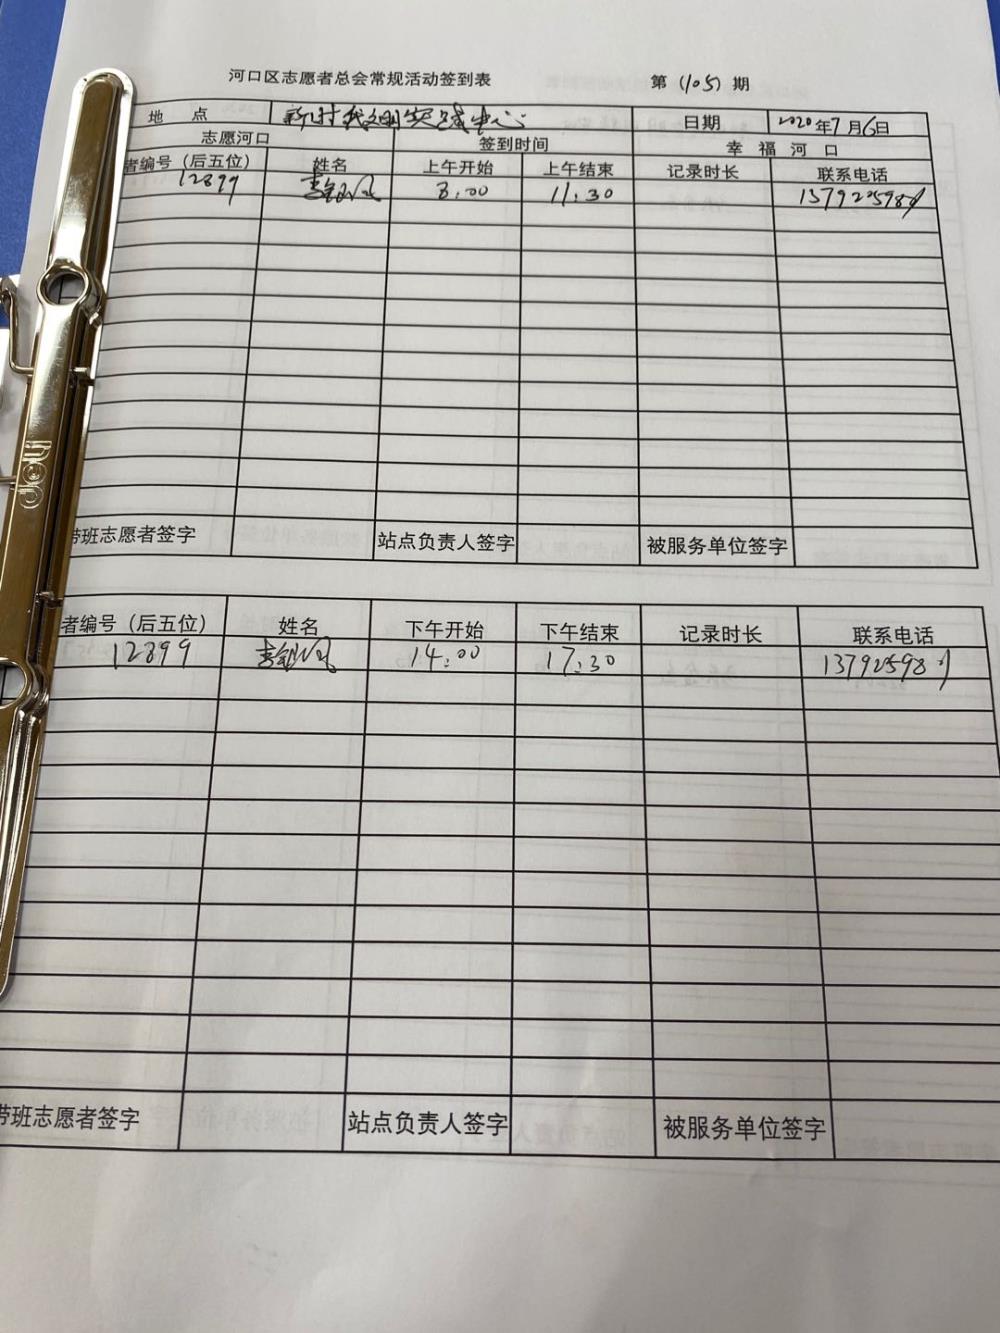 河口区志愿者总会常规活动签到表 第(105)期
地 点 新时代文明实践中心 日期 2020年7月6日
志愿河口 签到时间 幸 福 河 口
者编号（后五位） 姓名 上午开始 上午结束 记录时长 联系电话
12899 8:00 11:30
带班志愿者签字 站点负责人签字 被服务单位签字
者编号（后五位） 姓名 下午开始 下午结束 记录时长 联系电话
12899 14:00 17:30
带班志愿者签字 站点负责人签字 被服务单位签字